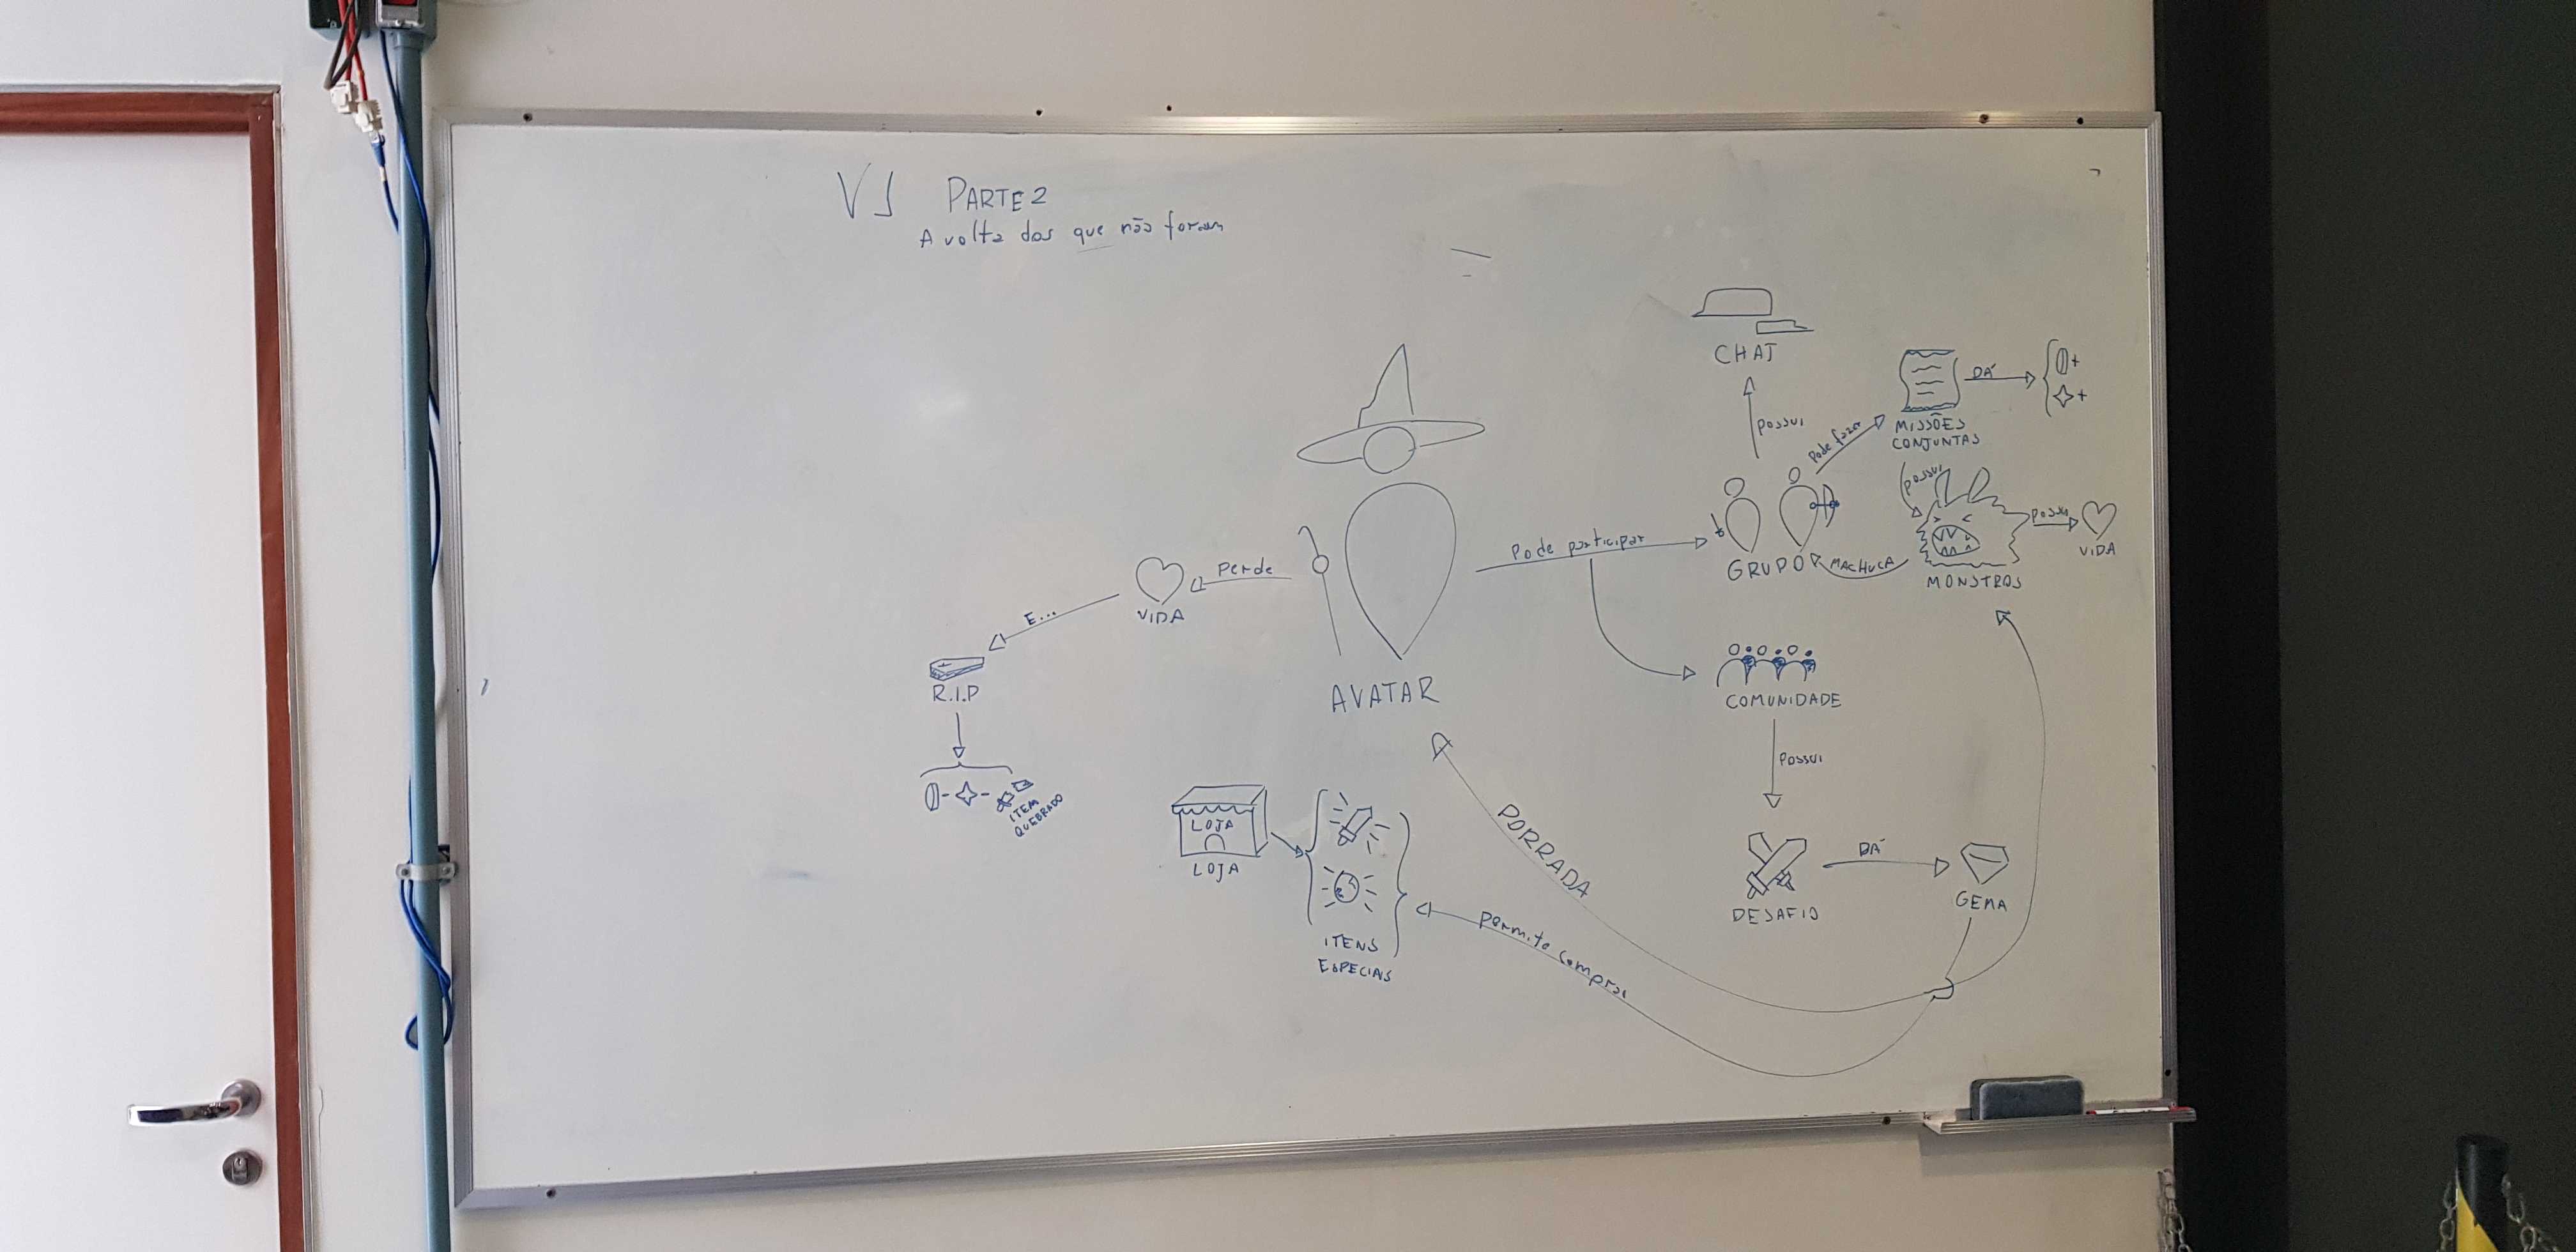 V1 PARTE 2
A volta dos que não foram
CHAT
possui
Pode fazer
MISSÕES
CONJUNTAS
DÁ
+
+
possui
Pode participar
GRUPO
MACHUCA
MONSTROS
possui
VIDA
Perde
VIDA
E...
R.I.P
- -
ITEM
QUEBRADO
AVATAR
COMUNIDADE
Possui
DESAFIO
DÁ
GEMA
PORRADA
LOJA
LOJA
ITENS
ESPECIAIS
permite comprar